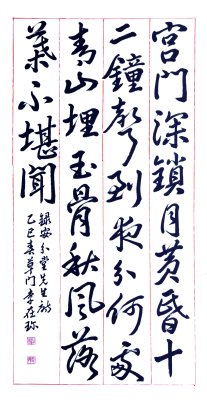 宮門深鎖月黃昏十
二鐘聲到夜分何處
青山埋玉骨秋風落
葉不堪聞
錄安分堂先生詩
乙巳春草門李在珎